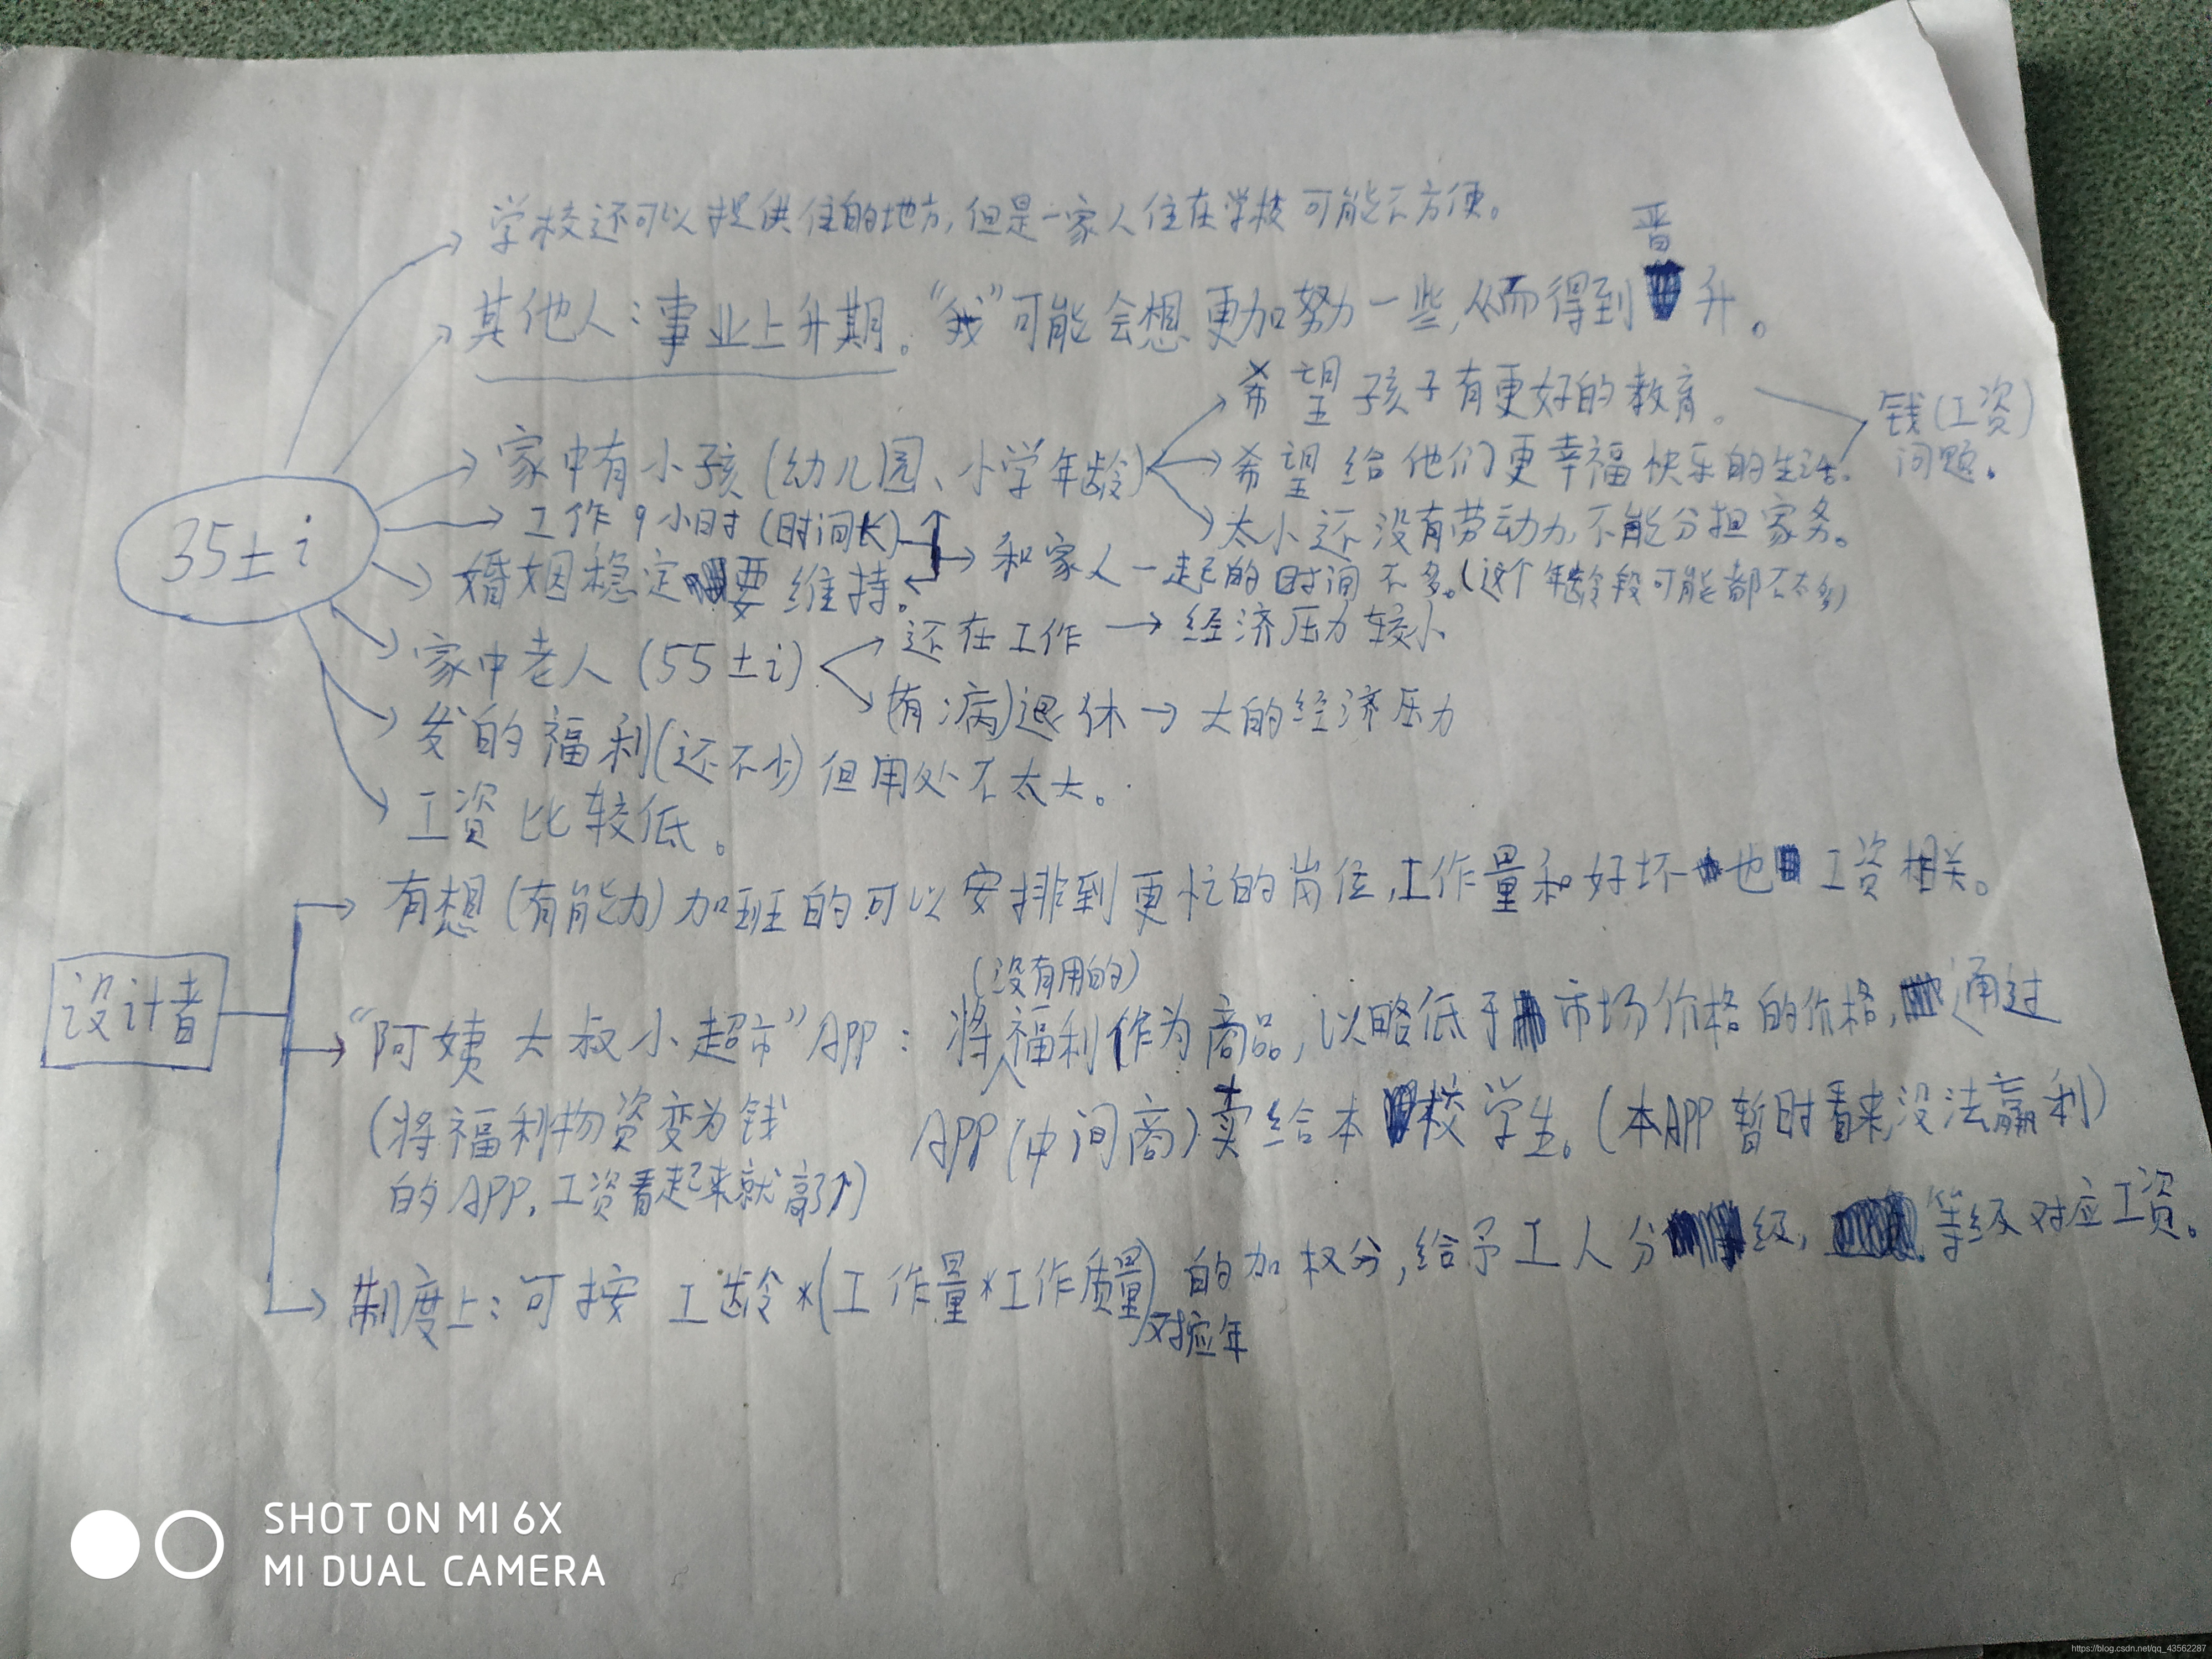 学校还可以提供住的地方,但是一家人住在学校可能不方便。
晋
其他人:事业上升期。"我"可能会想更加努力一些,从而得到升。
希望孩子有更好的教育。
钱(工资)
问题。
家中有小孩(幼儿园、小学年龄)
希望给他们更幸福快乐的生活.
35±i
工作9小时(时间长)
太小还没有劳动力,不能分担家务。
婚姻稳定要维持。
和家人一起的时间不多。(这个年龄段可能都不太多)
家中老人(55±i)
还在工作→经济压力较小
(有病)退休→大的经济压力
发的福利(还不少)但用处不太大。
工资比较低。
有想(有能力)加班的可以安排到更忙的岗位,工作量和好坏也工资相关。
设计者
(没有用的)
"阿姨大叔小超市"APP:将福利作为商品,以略低于市场价格的价格,通过
(将福利物资变为钱
APP(中间商)卖给本校学生。(本APP暂时看来没法赢利)
的APP,工资看起来就高了↑)
制度上:可按工龄*(工作量*工作质量)的加权分,给予工人分级,等级对应工资。
对应年
SHOT ON MI 6X
MI DUAL CAMERA
https://blog.csdn.net/qq_43562287